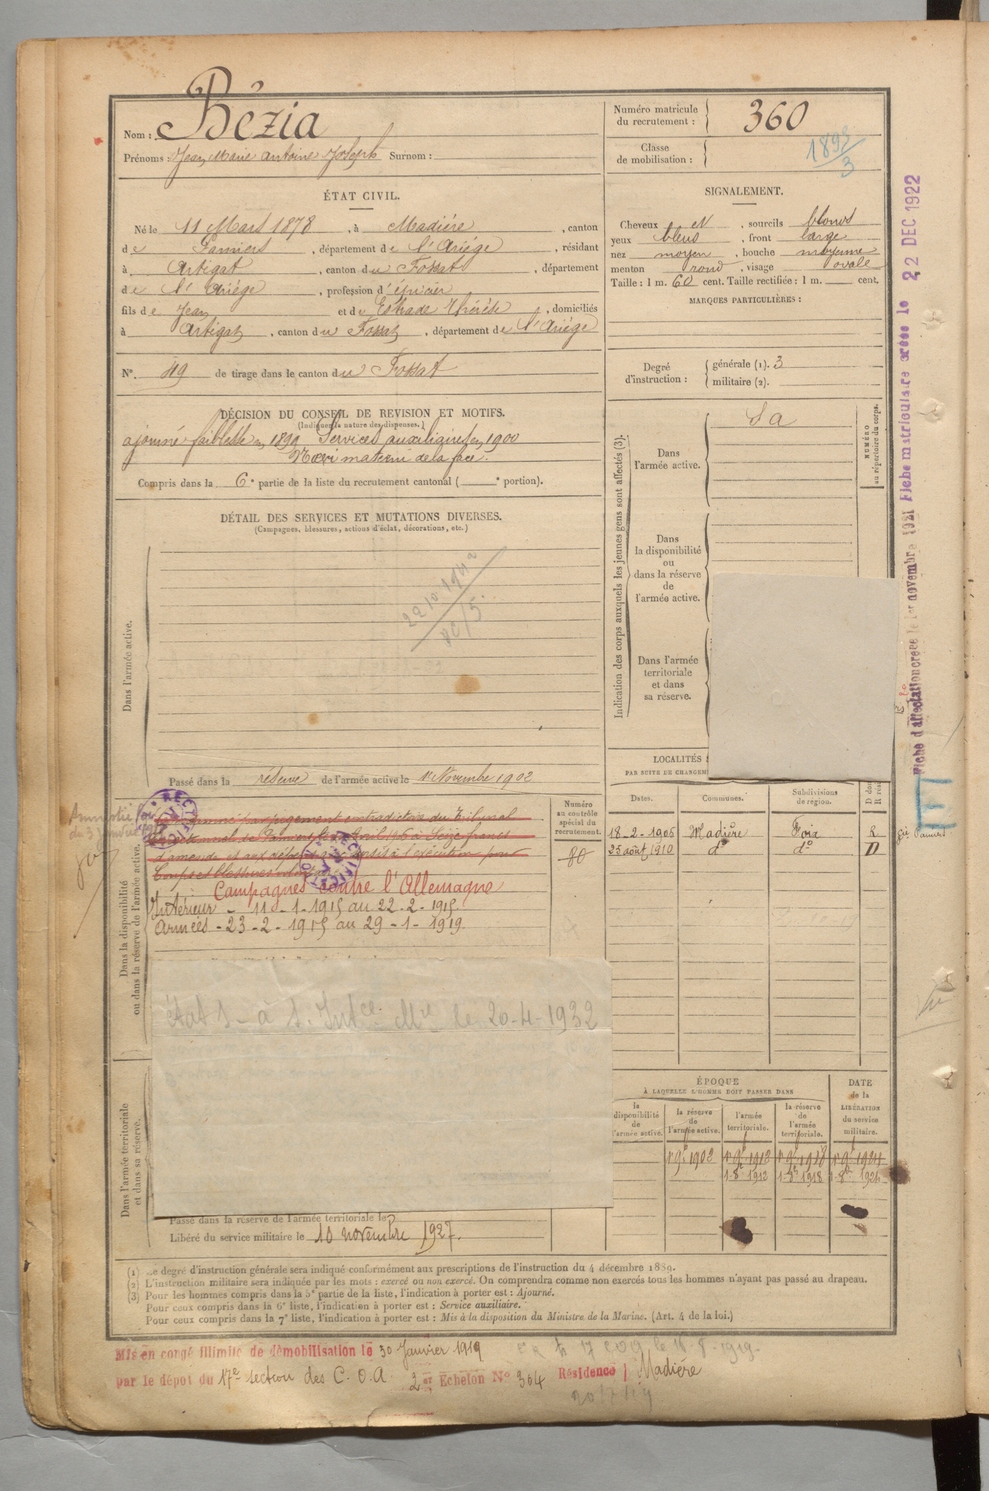 Nom : Bézia
Prénoms : Jean Marie Antoine Joseph Surnom :
Numéro matricule du recrutement : 360
Classe de mobilisation : 1898/3
ÉTAT CIVIL.
Né le 11 Mars 1878, à Madière, canton
de Pamiers, département de l'Ariége, résidant
à Artigat, canton du Fossat, département
de l'Ariége, profession d'épicier
fils de Jean et de Estrade Thérèse, domiciliés
à Artigat, canton du Fossat, département de l'Ariége
N°. 49 de tirage dans le canton du Fossat
SIGNALEMENT.
Cheveux et, sourcils blonds
yeux bleus, front large
nez moyen, bouche moyenne
menton rond, visage ovale
Taille : 1 m. 60 cent. Taille rectifiée : 1 m. cent.
MARQUES PARTICULIÈRES :
Degré d'instruction : générale (1). 3
militaire (2).
DÉCISION DU CONSEIL DE REVISION ET MOTIFS.
(Indiquer la nature des dispenses.)
ajourné faiblesse en 1899 Services auxiliaires en 1900
Nævi materni de la face.
Compris dans la 6e partie de la liste du recrutement cantonal ( e portion).
DÉTAIL DES SERVICES ET MUTATIONS DIVERSES.
(Campagnes, blessures, actions d'éclat, décorations, etc.)
Dans l'armée active.
Passé dans la réserve de l'armée active le 1er Novembre 1902
Indication des corps auxquels les jeunes gens sont affectés (3).
Dans l'armée active. S a
NUMÉRO au répertoire du corps.
Dans la disponibilité ou dans la réserve de l'armée active.
Dans l'armée territoriale et dans sa réserve.
Fiche matriculaire créée le 22 DEC 1922
Fiche d'affectation créée le 1er novembre 1921
LOCALITÉS
PAR SUITE DE CHANGEM
Dates. Communes. Subdivisions de région.
18-2-1905 Madière Foix R
25 août 1910 do do D
Dans la disponibilité ou dans la réserve de l'armée active.
Numéro au contrôle spécial du recrutement.
80
RECTIFICATION
Campagnes contre l'Allemagne
Intérieur - 11-1-1915 au 22-2-1915
Armées - 23-2-1915 au 29-1-1919.
État S - à S. Intce. Mre le 20-4-1932
Dans l'armée territoriale et dans sa réserve.
ÉPOQUE
À LAQUELLE L'HOMME DOIT PASSER DANS
la disponibilité de l'armée active. la réserve de l'armée active. l'armée territoriale. la réserve de l'armée territoriale. DATE de la LIBÉRATION du service militaire.
1-8e 1912 1-8e 1918
Passé dans la réserve de l'armée territoriale le
Libéré du service militaire le 10 novembre 1927.
(1) Le degré d'instruction générale sera indiqué conformément aux prescriptions de l'instruction du 4 décembre 1889.
(2) L'instruction militaire sera indiquée par les mots : exercé ou non exercé. On comprendra comme non exercés tous les hommes n'ayant pas passé au drapeau.
(3) Pour les hommes compris dans la 5e partie de la liste, l'indication à porter est : Ajourné.
Pour ceux compris dans la 6e liste, l'indication à porter est : Service auxiliaire.
Pour ceux compris dans la 7e liste, l'indication à porter est : Mis à la disposition du Ministre de la Marine. (Art. 4 de la loi.)
Mis en congé illimité de démobilisation le 30 Janvier 1919
par le dépôt du 17e section des C.O.A. 2e Échelon N° 304 Résidence Madière